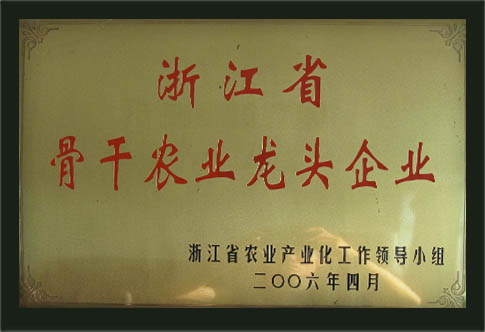 浙江省
骨干农业龙头企业
浙江省农业产业化工作领导小组
二〇〇六年四月